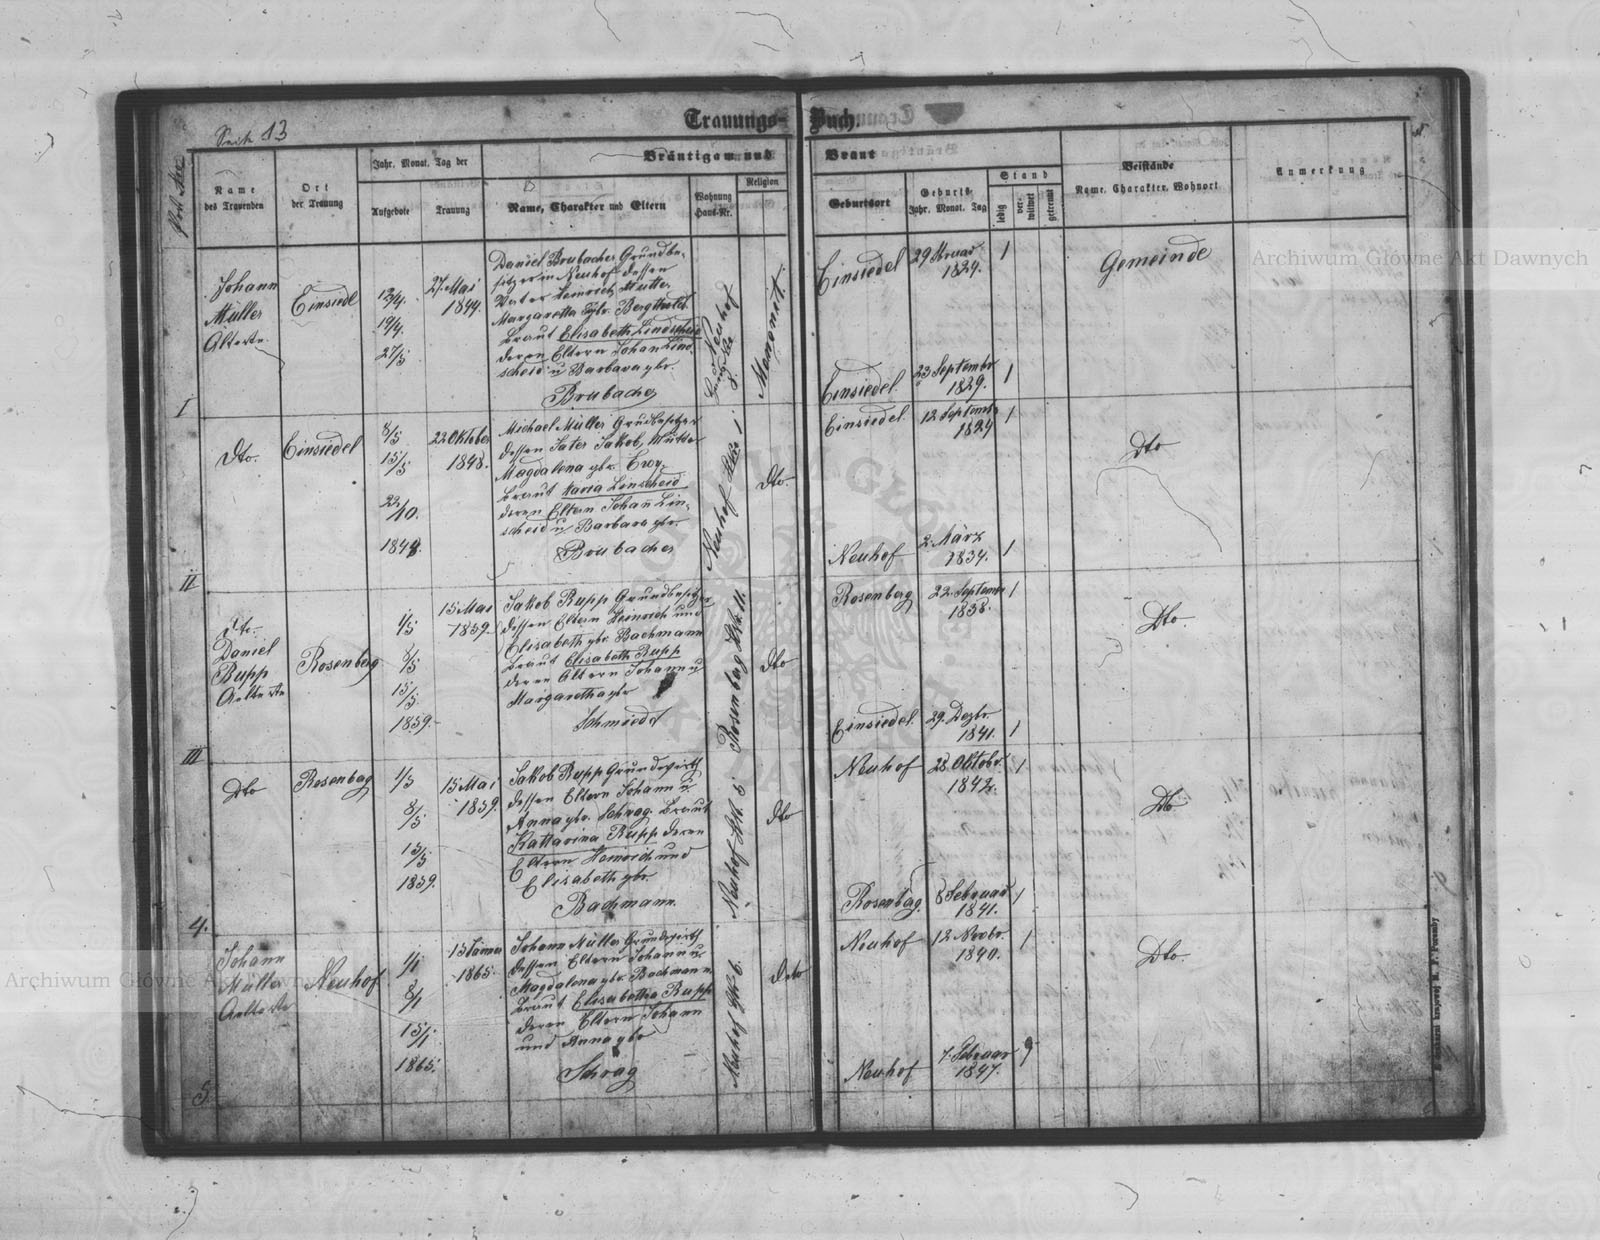 Seite 13
Trauungs-Buch.
Bräutigam und Braut
Name
des Trauenden
Ort
der Trauung
Jahr. Monat. Tag der
Aufgebote
Trauung
Name, Charakter und Eltern
Wohnung
Haus-Nr.
Religion
Geburtsort
Geburts-
Jahr. Monat. Tag
Stand
ledig
ver-
witwet
getrennt
Beistände
Name. Charakter. Wohnort
Anmerkung
I
Johann
Müller
Älteste
Einsiedl
12/4.
19/4.
27/5
27. Mai
1849.
Daniel Brubacher Grundbe-
sitzer in Neuhof dessen
Vater Heinrich Mutter
Margaretta gbr. Bergthold
Braut Elisabeth Lindscheid
deren Eltern Johan Lind-
scheid u Barbara gbr.
Brubacher
Neuhof
Menonit.
Einsiedel
29
1829.
1
Einsiedel
23 Septembr
1829.
1
Gemeinde
II
Dto.
Einsiedel
8/5
15/5
22/10.
1848.
22 Oktober
1848.
Michael Müller Grudbesitzer
dessen Vater Jakob, Mutter
Magdalena gbr.
Braut Maria Linscheid
deren Eltern Johann Lin-
scheid u Barbara gbr.
Brubacher
Neuhof
Dto.
Einsiedel
12 Septembr
1824
1
Neuhof
2. März
1834.
1
Dto
III
Dto.
Daniel
Rupp
Aelteste
Rosenberg
1/5
8/5
15/5.
1859.
15 Mai
1859.
Jakob Rupp Grundbesitzer
dessen Eltern Heinrich und
Elisabeth gbr. Bachmann
Braut Elisabeth Rupp
deren Eltern Johann u
Margaretha gbr
Schmiedt
Rosenbag No. 11.
Dto
Rosenberg
22. Septembr
1838.
1
Einsiedel.
29. Dezbr.
1841.
1
Dto.
4.
Dto
Rosenbag
1/5
8/5
15/5
1859.
15 Mai
1859.
Jakob Rupp Grundwirth
dessen Eltern Johann u
Anna gbr. Schrag. Braut
Kattarina Rupp deren
Eltern Heinrich und
Elisabeth gbr.
Bachmann.
Neuhof
Dto
Neuhof
28 Oktobr.
1842.
1
Rosenbag.
8 Februar
1841.
1
Dto
5.
Johann
Müller
Aelteste
Neuhof
1/1
8/1
15/1
1865.
15
1865.
Johann Müller Grundwirth
dessen Eltern Johann u
Magdalena gbr. Bachmann.
Braut Elisabetha Rupp
deren Eltern Johann
und Anna gbr
Schrag
Neuhof No 6.
Dto
Neuhof
12 Novbr.
1840.
1
Neuhof
7. Februar
1847.
Dto.
Archiwum Główne Akt Dawnych
Archiwum Główne Akt Dawnych